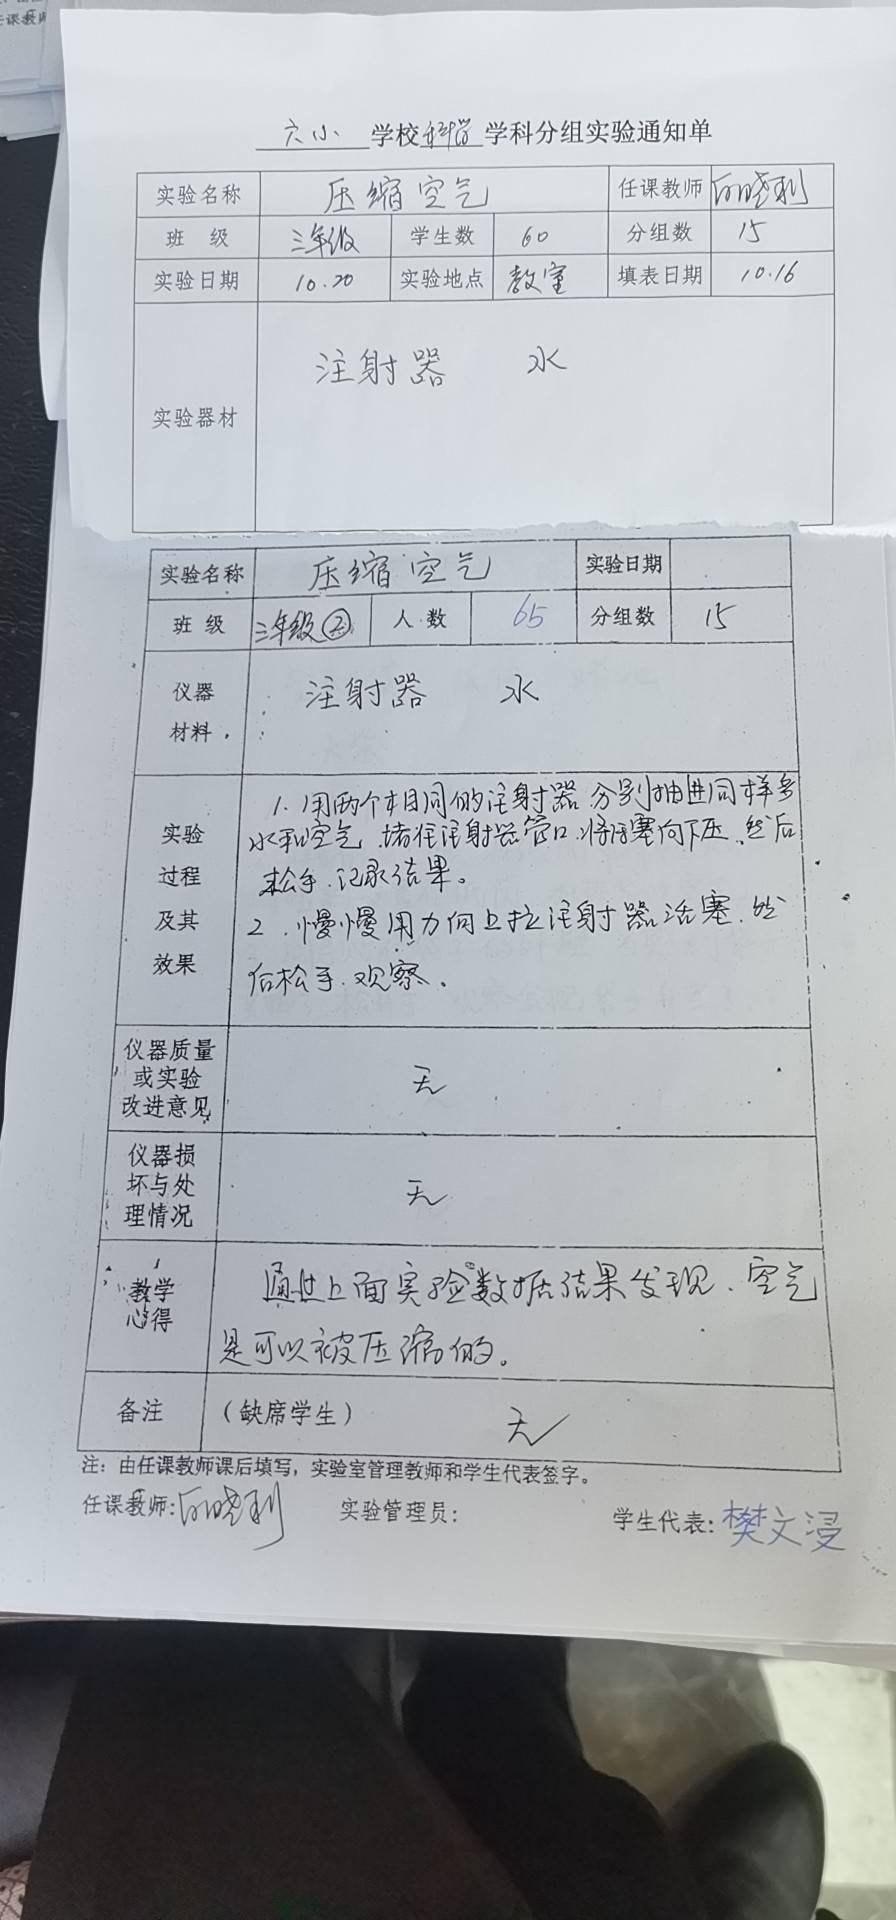 任课教师
六小 学校 科学 学科分组实验通知单
实验名称 压缩空气 任课教师 向晓利
班 级 三年级 学生数 60 分组数 15
实验日期 10.20 实验地点 教室 填表日期 10.16
实验器材 注射器 水
实验名称 压缩空气 实验日期
班 级 三年级② 人 数 65 分组数 15
仪器 注射器 水
材料
实验 1. 用两个相同的注射器 分别抽进同样多
过程 水和空气 堵住注射器管口.将活塞向下压.然后
及其 松手.记录结果。
效果 2.慢慢用力向上拉注射器活塞.然
后松手.观察.
仪器质量
或实验 无
改进意见
仪器损
坏与处 无
理情况
教学 通过上面实验数据结果发现.空气
心得 是可以被压缩的。
备注 (缺席学生) 无
注：由任课教师课后填写，实验室管理教师和学生代表签字。
任课教师:向晓利 实验管理员: 学生代表:樊文浸